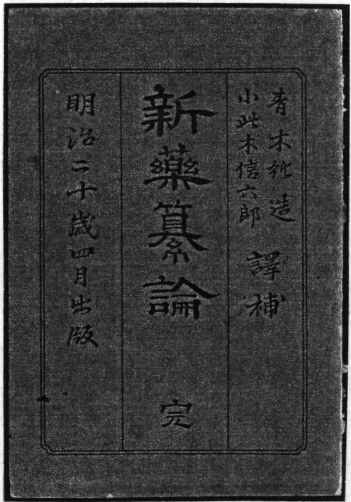 青木純造
小此木信六郎
譯補
新藥纂論
完
明治二十歳四月出版